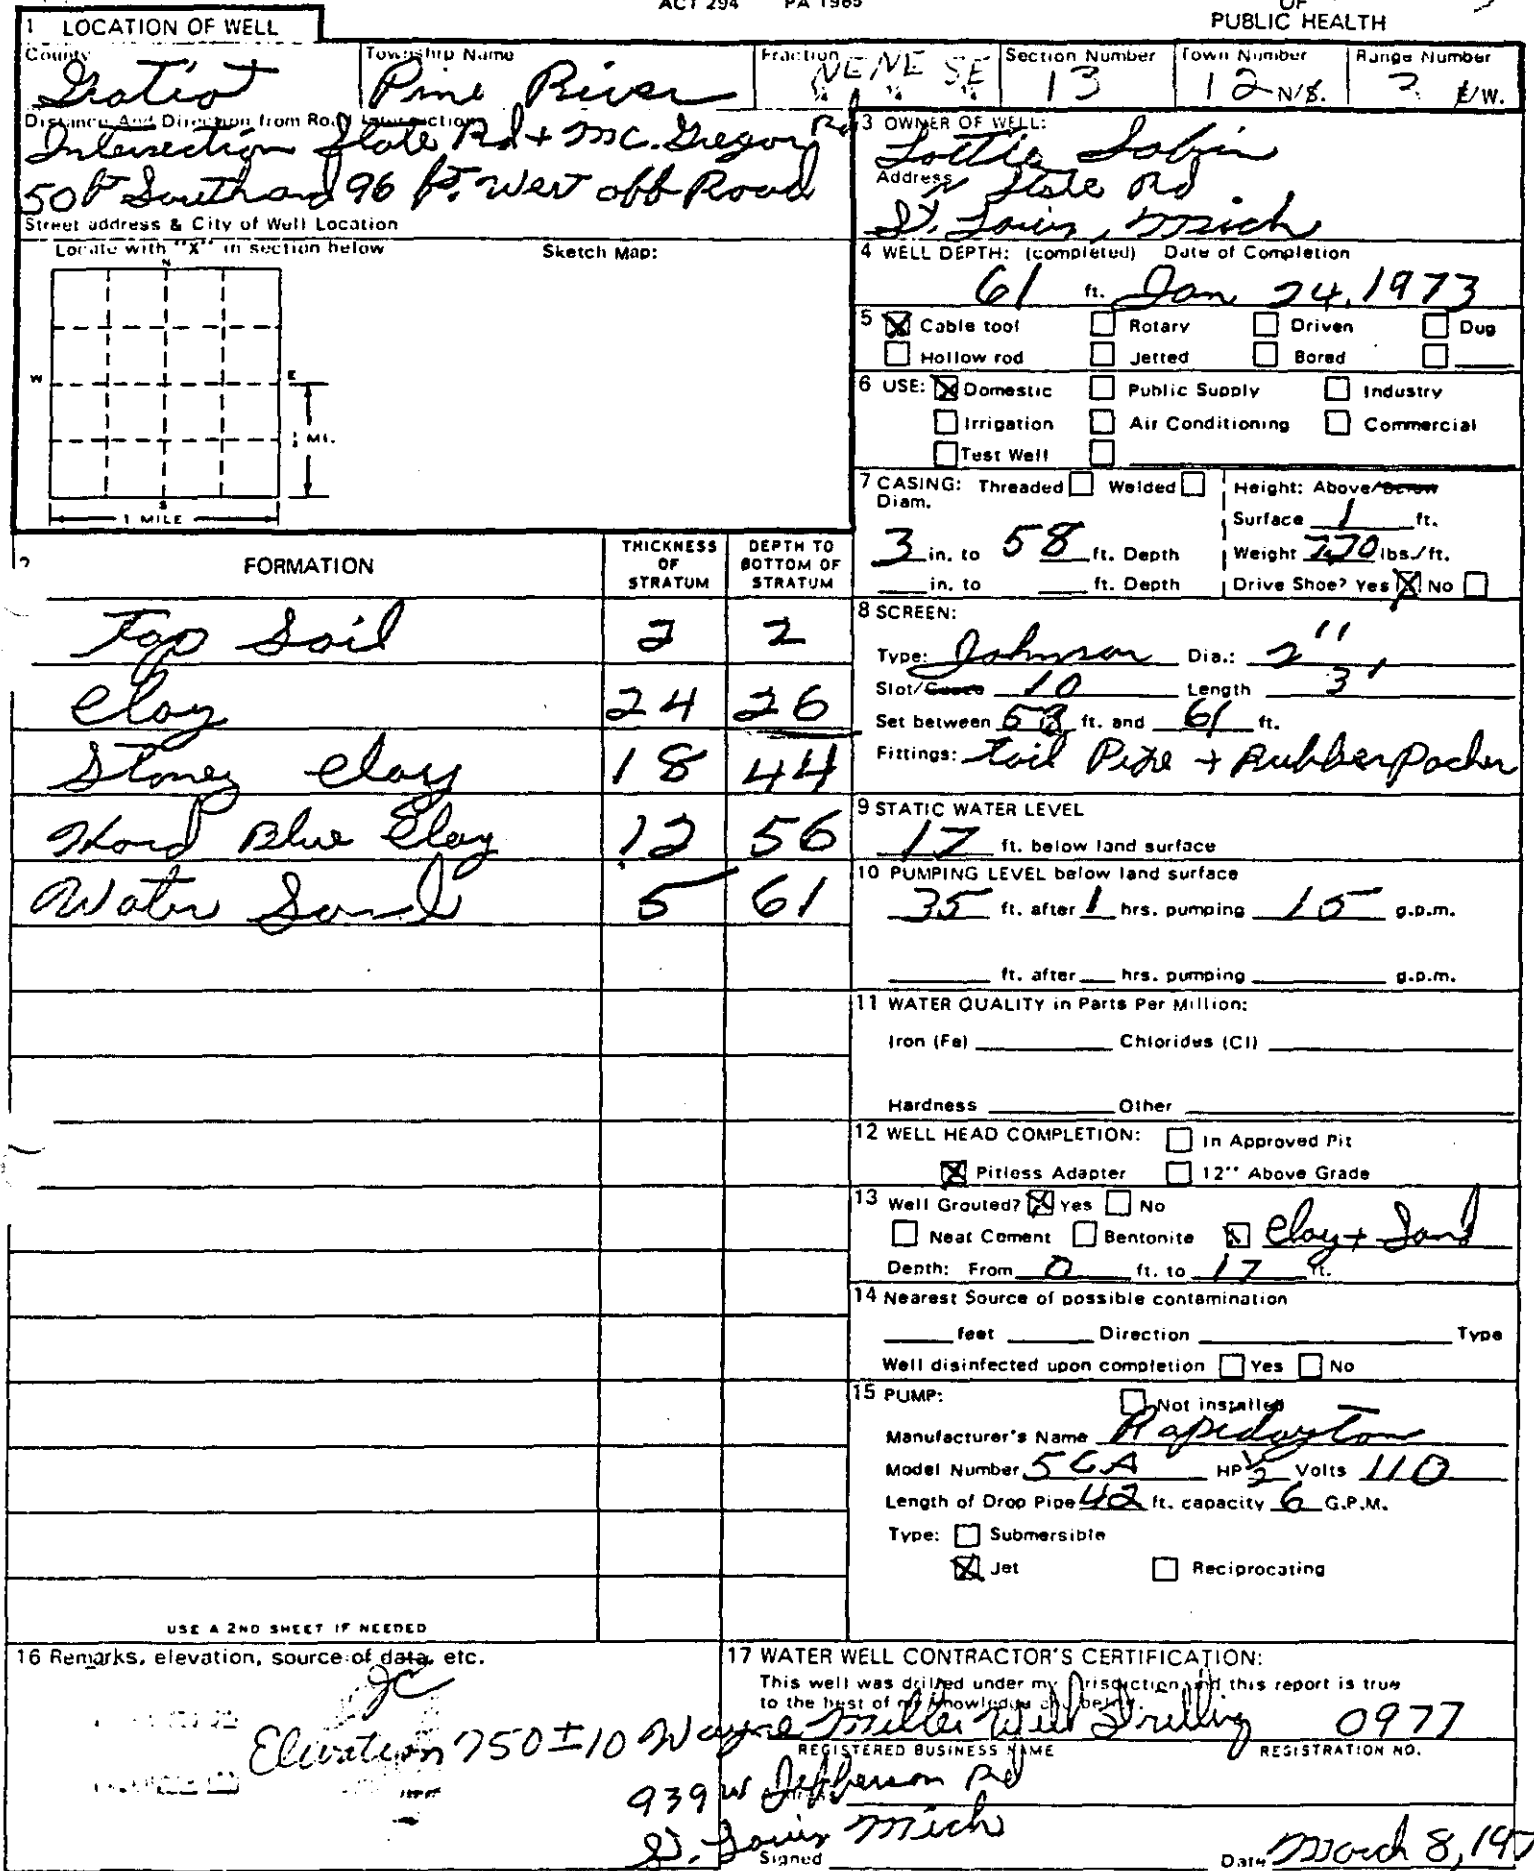 ACT 294 PA 1965
OF
PUBLIC HEALTH
1 LOCATION OF WELL
County Township Name Fraction Section Number Town Number Range Number
Gratiot Pine River NE NE SE 13 12 N/S. 3 E/W.
¼ ¼ ¼
Distance And Direction from Road Intersection
Intersection State Rd + Mc. Gregor Rd
50 ft South and 96 ft. West off Road
Street address & City of Well Location
Locate with "X" in section below Sketch Map:
N
W E
S
½ MI.
1 MILE
3 OWNER OF WELL:
Lottie Sabin
Address
N State Rd
St. Louis, Mich
4 WELL DEPTH: (completed) Date of Completion
61 ft. Jan 24, 1973
5 Cable tool Rotary Driven Dug
Hollow rod Jetted Bored
6 USE: Domestic Public Supply Industry
Irrigation Air Conditioning Commercial
Test Well
7 CASING: Threaded Welded Height: Above/Below
Diam. Surface 1 ft.
3 in. to 58 ft. Depth Weight 7.70 lbs./ft.
in. to ft. Depth Drive Shoe? Yes No
2 FORMATION THICKNESS OF STRATUM DEPTH TO BOTTOM OF STRATUM
Top Soil 2 2
Clay 24 26
Stoney Clay 18 44
Hard Blue Clay 12 56
Water Sand 5 61
USE A 2ND SHEET IF NEEDED
8 SCREEN:
Type: Johnson Dia.: 2"
Slot/Gauze 10 Length 3'
Set between 58 ft. and 61 ft.
Fittings: Tail Pipe + Rubber Packer
9 STATIC WATER LEVEL
17 ft. below land surface
10 PUMPING LEVEL below land surface
35 ft. after 1 hrs. pumping 15 g.p.m.
ft. after hrs. pumping g.p.m.
11 WATER QUALITY in Parts Per Million:
Iron (Fe) Chlorides (Cl)
Hardness Other
12 WELL HEAD COMPLETION: In Approved Pit
Pitless Adapter 12" Above Grade
13 Well Grouted? Yes No
Neat Cement Bentonite Clay + Sand
Depth: From 0 ft. to 17 ft.
14 Nearest Source of possible contamination
feet Direction Type
Well disinfected upon completion Yes No
15 PUMP: Not installed
Manufacturer's Name Rapidayton
Model Number 5CA HP ½ Volts 110
Length of Drop Pipe 42 ft. capacity 6 G.P.M.
Type: Submersible
Jet Reciprocating
16 Remarks, elevation, source of data, etc.
JC
Elevation 750±10
17 WATER WELL CONTRACTOR'S CERTIFICATION:
This well was drilled under my jurisdiction and this report is true
to the best of my knowledge and belief.
Wayne Miller Well Drilling 0977
REGISTERED BUSINESS NAME REGISTRATION NO.
939 W Jefferson Rd
St. Louis Mich
Signed Date March 8, 197